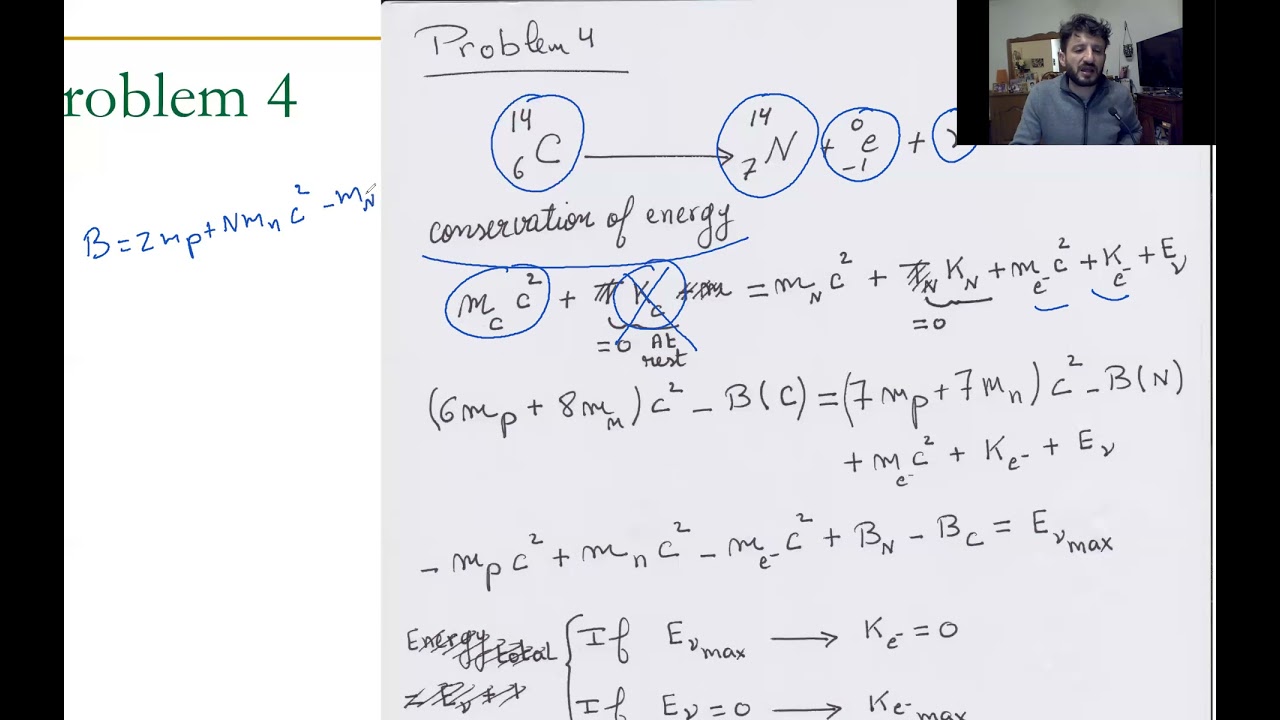 roblem 4
B = Zmp + Nmn c² - mN
Problem 4
¹⁴₆C ⟶ ¹⁴₇N + ⁰₋₁e +
conservation of energy
m_C c² + K_C = m_N c² + K_N + m_e⁻ c² + K_e⁻ + E_ν
=0 At rest =0
(6m_p + 8m_n) c² - B(C) = (7m_p + 7m_n) c² - B(N)
+ m_e⁻ c² + K_e⁻ + E_ν
- m_p c² + m_n c² - m_e⁻ c² + B_N - B_C = E_ν max
Energy total { If E_ν max ⟶ K_e⁻ = 0
If E_ν = 0 ⟶ K_e⁻ max